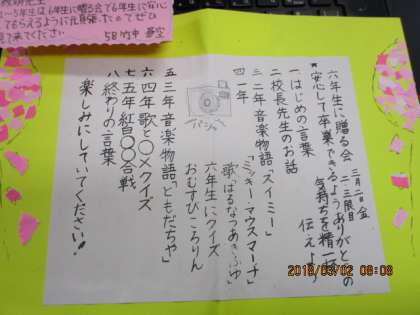 ～5年生は6年生に贈る会で6年生に安心
てもらえるように
見て来てください
六年生に贈る会
三月二日金
二・三限目
"安心して卒業できるようありがとうの
気持ちを精一杯
伝えよう
一はじめの言葉
二校長先生のお話
三二年音楽物語「スイミー」
「ミッキーマウスマーチ」
四一年
歌「はるなつあきふゆ」
六年生にクイズ
おむすびころりん
パシャ
五三年音楽物語「ともだちや」
六四年歌と〇×クイズ
七五年紅白〇〇合戦
八終わりの言葉
楽しみにしていてください！
2018/03/02 08:08